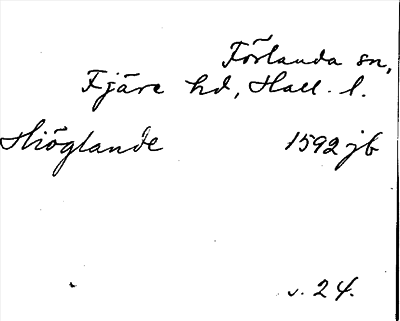 Förlanda sn,
Fjäre hd, Hall. l.
Skiöglande 1592 jb
s. 24.